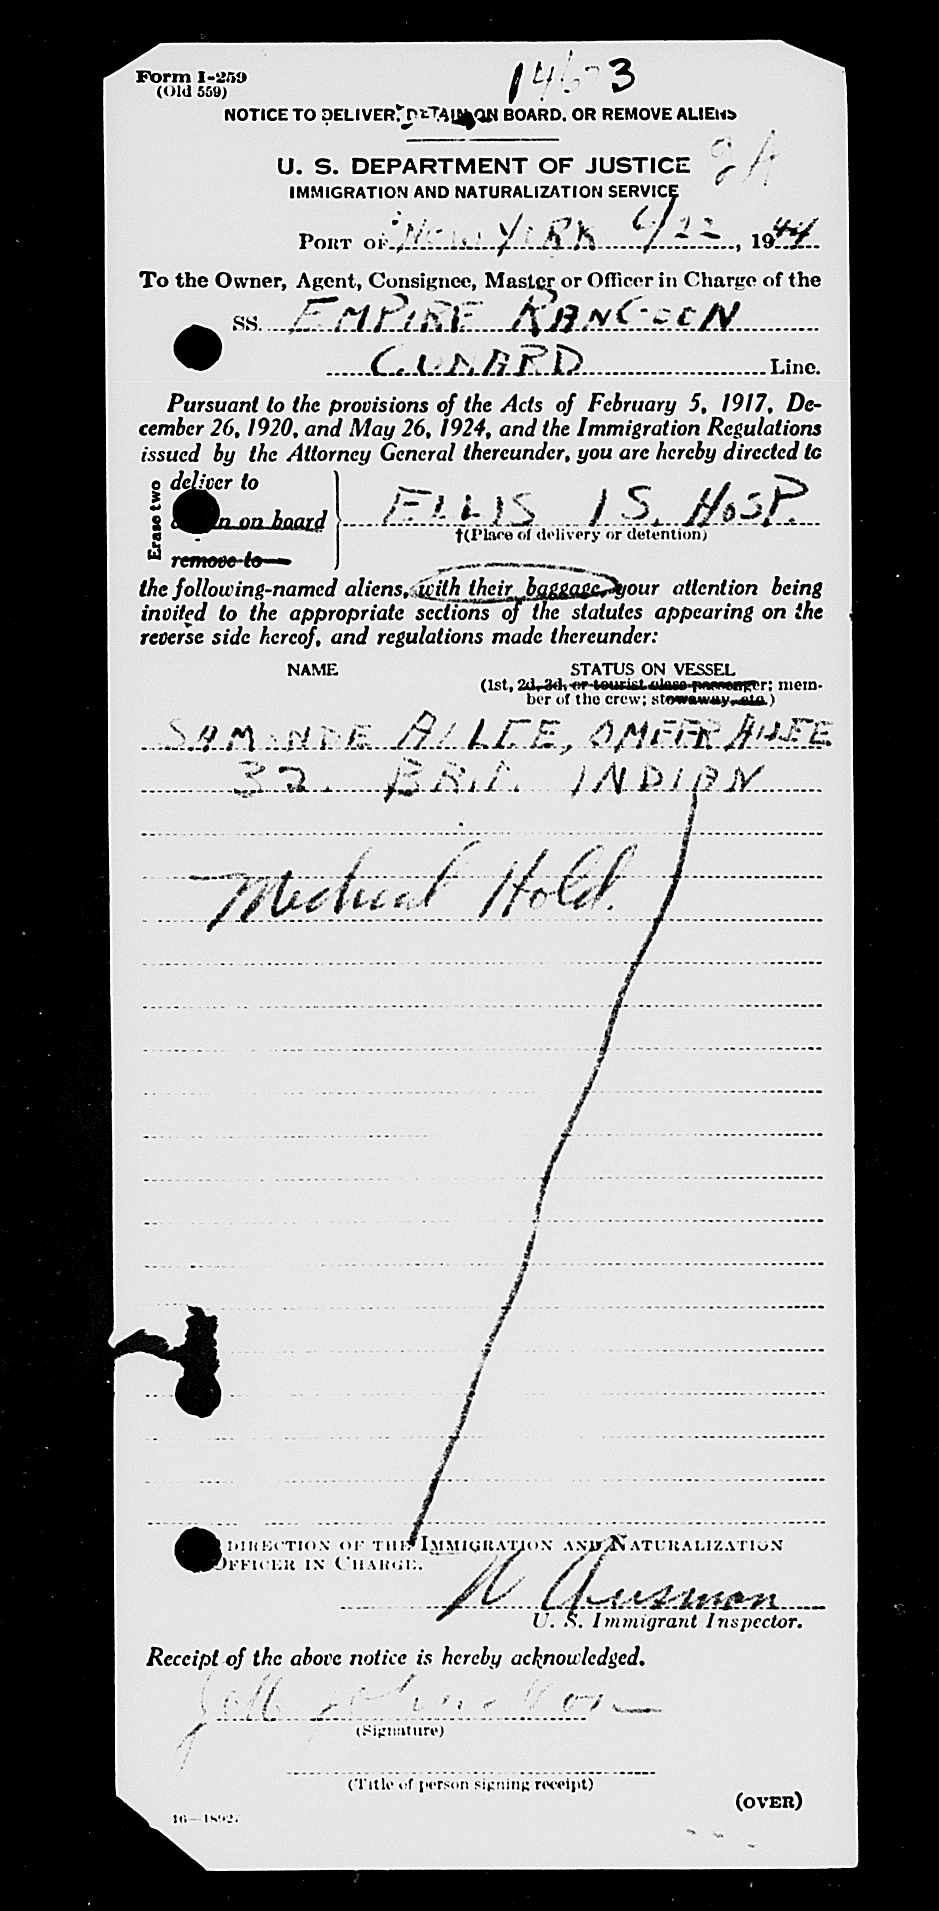 Form I-259
(Old 559)
NOTICE TO DELIVER, DETAIN ON BOARD, OR REMOVE ALIENS
U. S. DEPARTMENT OF JUSTICE
IMMIGRATION AND NATURALIZATION SERVICE
PORT OF NEW YORK 6/22, 1944
To the Owner, Agent, Consignee, Master or Officer in Charge of the
SS. EMPIRE RANGOON
CUNARD Line.
Pursuant to the provisions of the Acts of February 5, 1917, De-
cember 26, 1920, and May 26, 1924, and the Immigration Regulations
issued by the Attorney General thereunder, you are hereby directed to
Erase two
deliver to
on board
remove to
ELLIS IS. HOSP.
†(Place of delivery or detention)
the following-named aliens, with their baggage, your attention being
invited to the appropriate sections of the statutes appearing on the
reverse side hereof, and regulations made thereunder:
NAME STATUS ON VESSEL
(1st, 2d, 3d, or tourist class passenger; mem-
ber of the crew; stowaway, etc.)
OMEER
32. BRIT. INDIAN
Medical Hold.
DIRECTION OF THE IMMIGRATION AND NATURALIZATION
OFFICER IN CHARGE.
U. S. Immigrant Inspector.
Receipt of the above notice is hereby acknowledged.
(Signature)
(Title of person signing receipt)
(OVER)